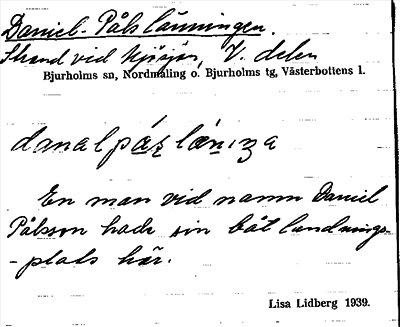 Daniel-Pålslänningen.
Strand vid Hjösjön, V. delen
Bjurholms sn, Nordmaling o. Bjurholms tg, Västerbottens l.
En man vid namn Daniel
Pålsson hade sin båtlandnings-
-plats här.
Lisa Lidberg 1939.